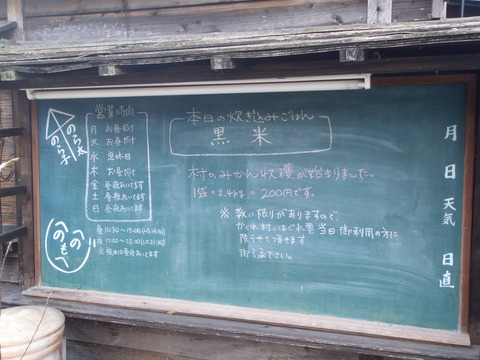 営業時間
月 お昼だけ
火 お昼だけ
水 定休日
木 お昼だけ
金 昼夜あいてます
土 昼夜あいてます
日 昼夜あいてます
昼 11:30〜15:00
夜 17:00〜22:00
のら太
のら子
へのへのもへ
本日の炊き込みごはん
黒米
村のみかん収穫が始まりました。
1袋=2.4kg=200円です。
※ 数に限りがありますので
かくれ村、はぐれ雲 当日御利用の方に
限らせて頂きます
御了承下さい。
月
日
天気
日直